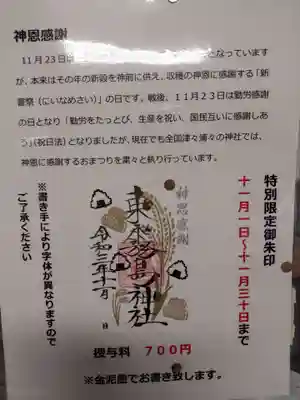 神恩感謝
11月23日は
となっています
が、本来はその年の新穀を神前に供え、収穫の神恩に感謝する「新
嘗祭（にいなめさい）」の日です。戦後、１１月２３日は勤労感謝
の日となり「勤労をたっとび、生産を祝い、国民互いに感謝しあ
う」（祝日法）となりましたが、現在でも全国津々浦々の神社では、
神恩に感謝するおまつりを粛々と執り行っています。
特別限定御朱印
十一月一日〜十一月三十日まで
神恩感謝
東
神社
令和三年十一月 日
※書き手により字体が異なりますので
ご了承ください
授与料 700円
※金泥墨でお書き致します。